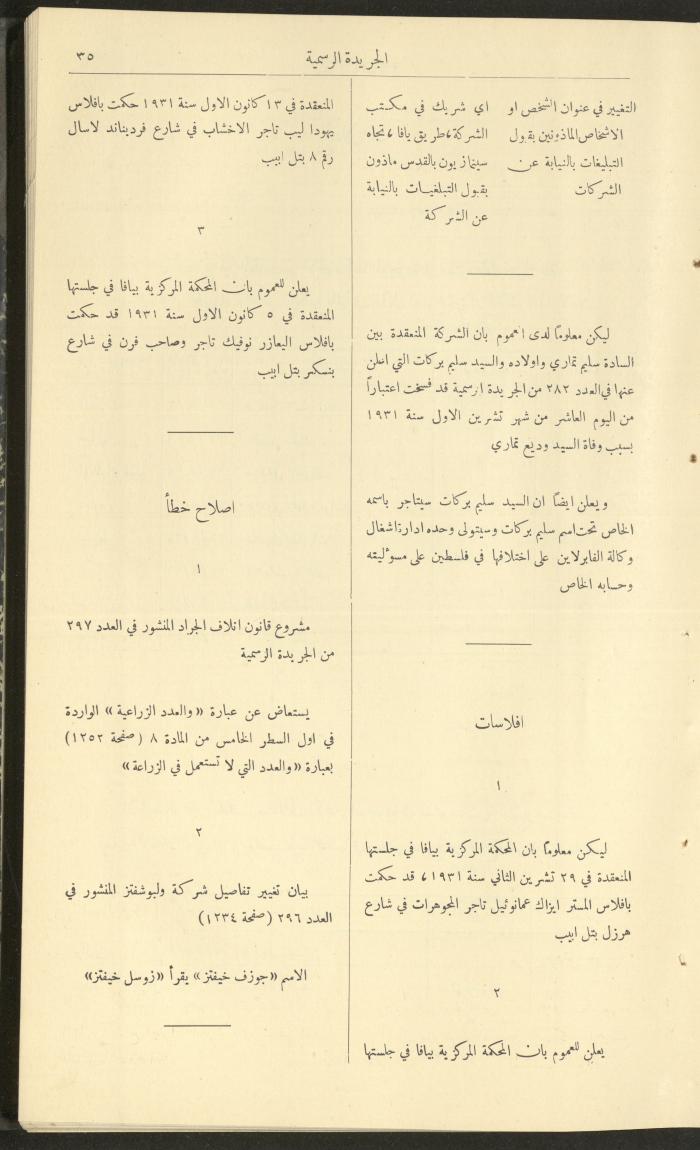 الجريدة الرسمية
٣٥
التغيير في عنوان الشخص او
الاشخاص الماذونين بقبول
التبليغات بالنيابة عن
الشركات
اي شريك في مكتب
الشركة، طريق يافا، تجاه
سينما زيون بالقدس ماذون
بقبول التبلغيات بالنيابة
عن الشركة
ليكن معلوماً لدى العموم بان الشركة المنعقدة بين
السادة سليم تماري واولاده والسيد سليم بركات التي اعلن
عنها في العدد ٢٨٢ من الجريدة الرسمية قد فسخت اعتباراً
من اليوم العاشر من شهر تشرين الاول سنة ١٩٣١
بسبب وفاة السيد وديع تماري
ويعلن ايضاً ان السيد سليم بركات سيتاجر باسمه
الخاص تحت اسم سليم بركات وسيتولى وحده ادارة اشغال
وكالة الفابرلاين على اختلافها في فلسطين على مسؤليته
وحسابه الخاص
افلاسات
١
ليكن معلوماً بان المحكمة المركزية بيافا في جلستها
المنعقدة في ٢٩ تشرين الثاني سنة ١٩٣١، قد حكمت
بافلاس المستر ايزاك عمانوئيل تاجر المجوهرات في شارع
هرزل بتل ابيب
٢
يعلن للعموم بان المحكمة المركزية بيافا في جلستها
المنعقدة في ١٣ كانون الاول سنة ١٩٣١ حكمت بافلاس
يهودا ليب تاجر الاخشاب في شارع فرديناند لاسال
رقم ٨ بتل ابيب
٣
يعلن للعموم بان المحكمة المركزية بيافا في جلستها
المنعقدة في ٥ كانون الاول سنة ١٩٣١ قد حكمت
بافلاس اليعازر نوفيك تاجر وصاحب فرن في شارع
بنسكر بتل ابيب
اصلاح خطأ
١
مشروع قانون اتلاف الجراد المنشور في العدد ٢٩٧
من الجريدة الرسمية
يستعاض عن عبارة «والعدد الزراعية» الواردة
في اول السطر الخامس من المادة ٨ (صفحة ١٢٥٢)
بعبارة «والعدد التي لا تستعمل في الزراعة»
٢
بيان تغيير تفاصيل شركة ولبوشفتز المنشور في
العدد ٢٩٦ (صفحة ١٢٣٤)
الاسم «جوزف خيفتز» يقرأ «زوسل خيفتز»